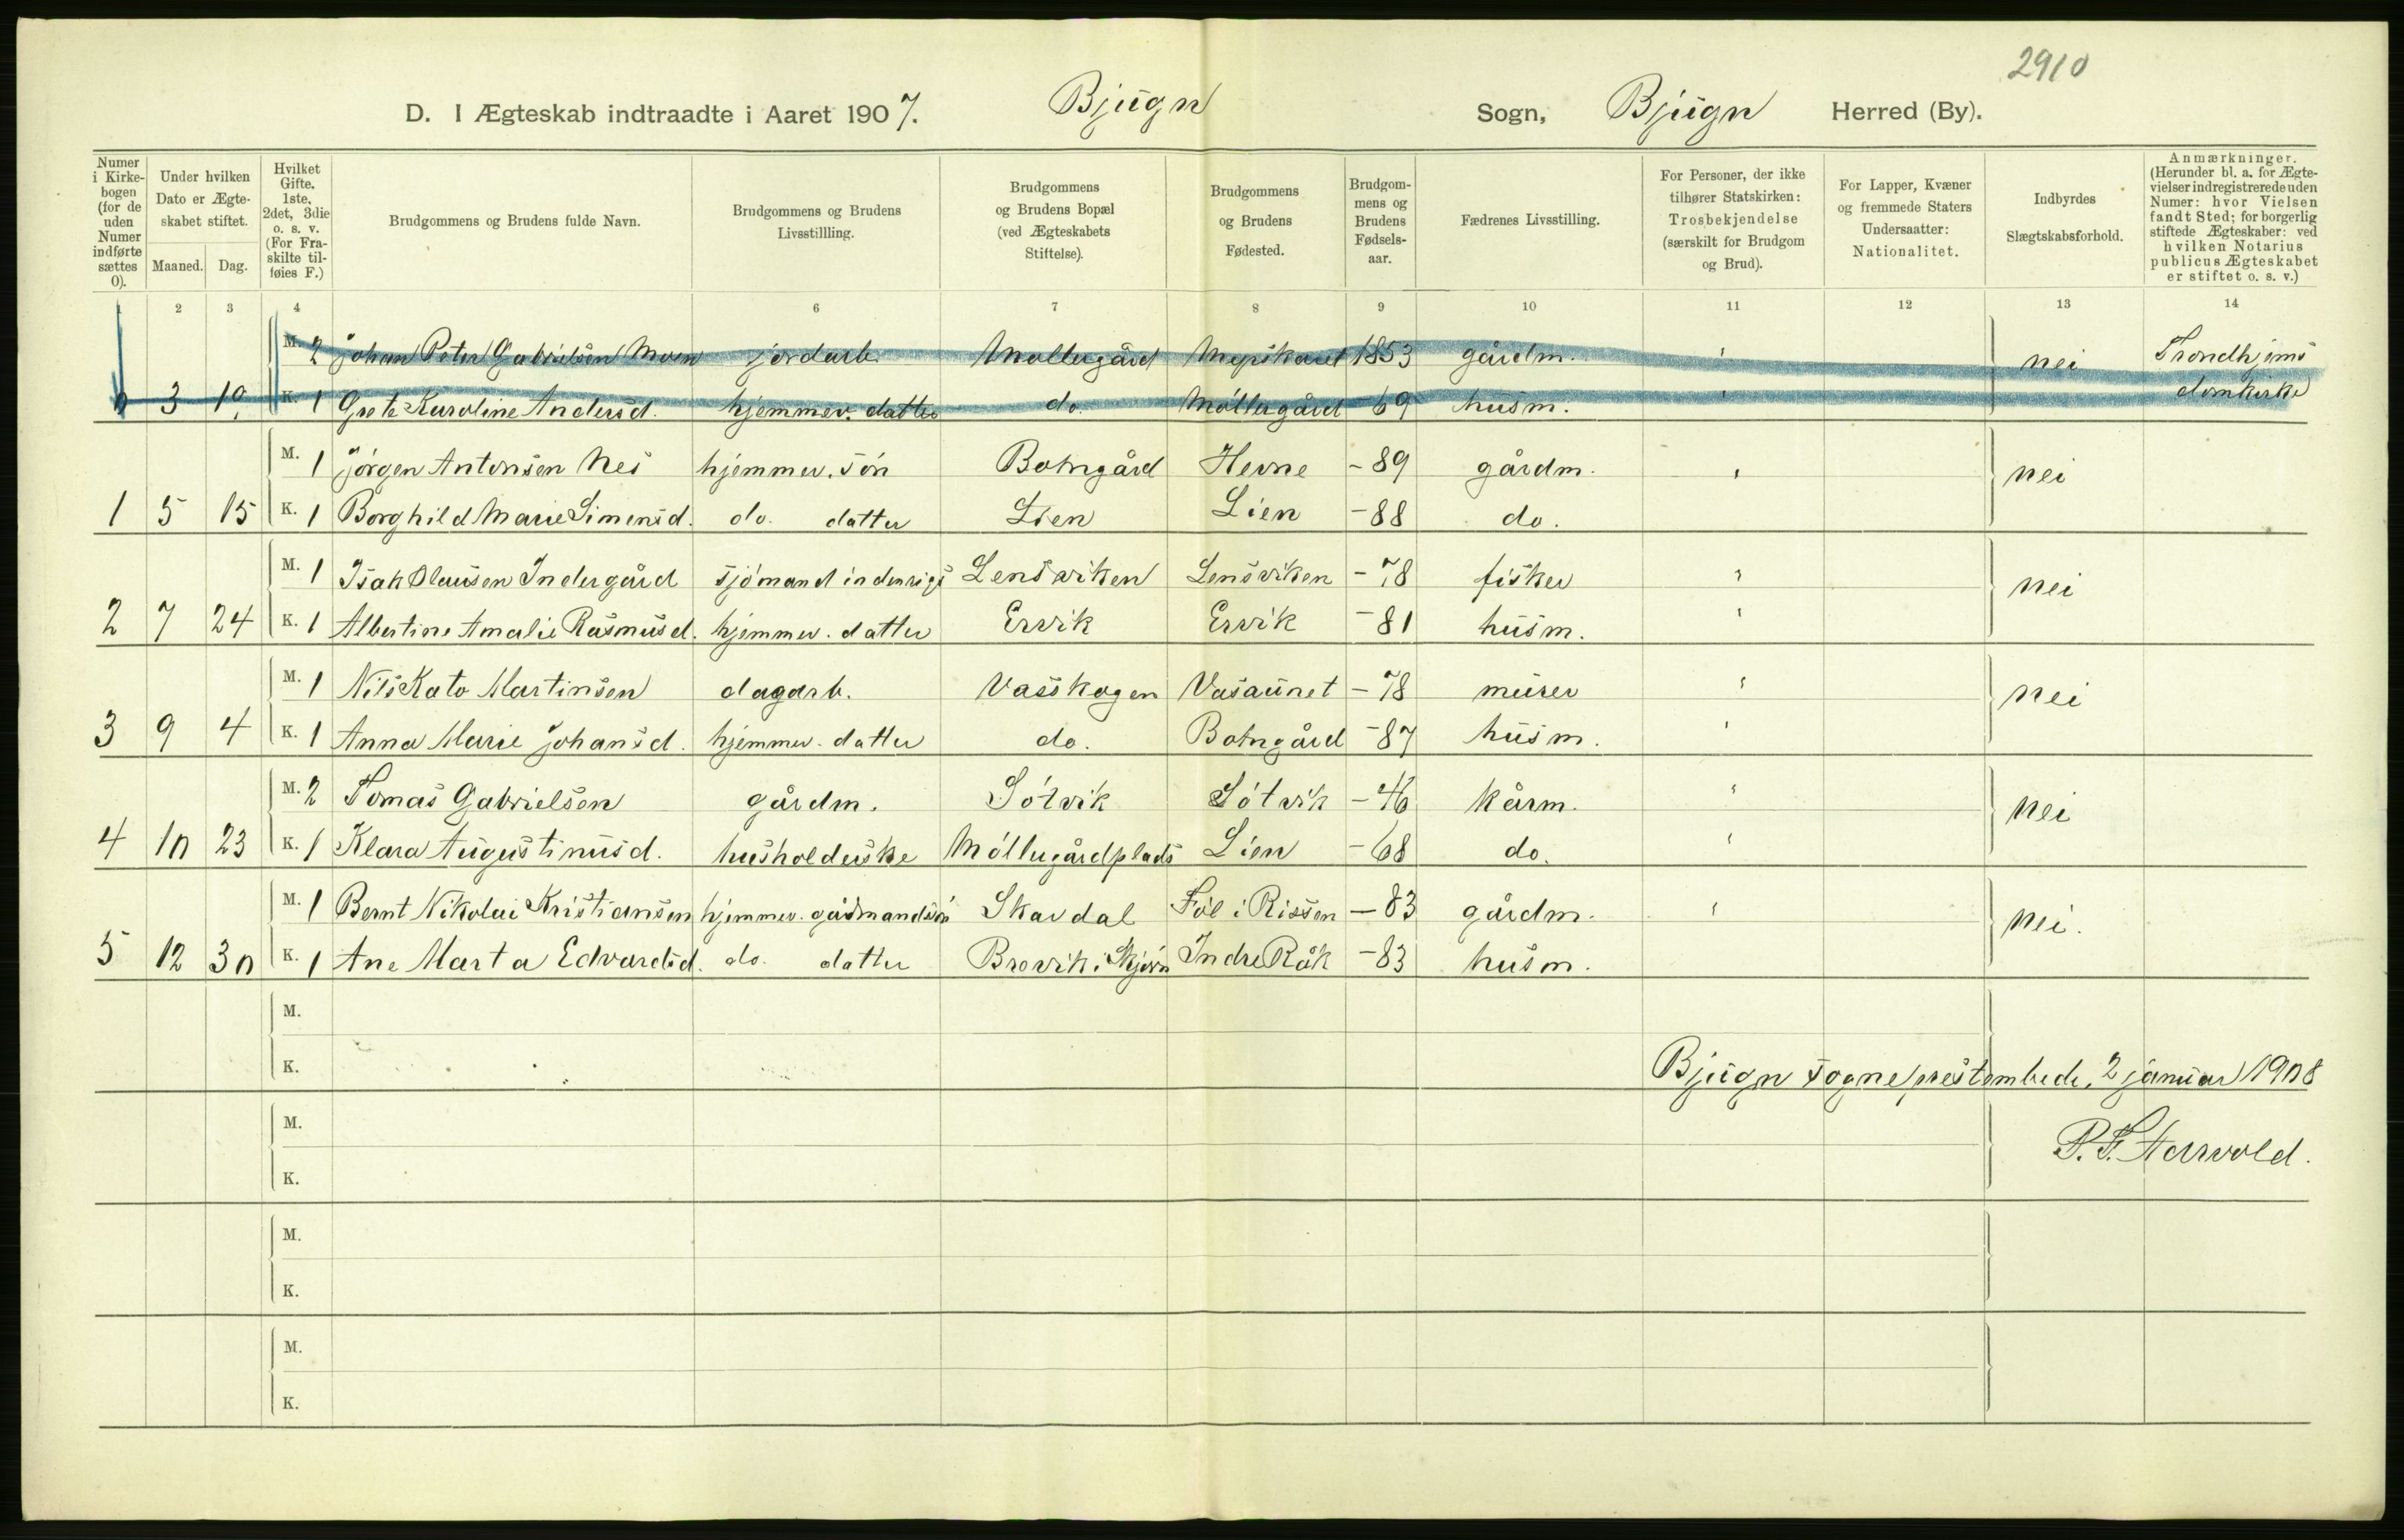 2910
D. I Ægteskab indtraadte i Aaret 1907. Bjugn Sogn, Bjugn Herred (By).
Numer i Kirkebogen (for de uden Numer indførte sættes 0).
Under hvilken Dato er Ægteskabet stiftet.
Maaned. Dag.
Hvilket Gifte. 1ste, 2det, 3die o. s. v. (For Fraskilte tilføies F.)
Brudgommens og Brudens fulde Navn.
Brudgommens og Brudens Livsstillling.
Brudgommens og Brudens Bopæl (ved Ægteskabets Stiftelse).
Brudgommens og Brudens Fødested.
Brudgommens og Brudens Fødselsaar.
Fædrenes Livsstilling.
For Personer, der ikke tilhører Statskirken: Trosbekjendelse (særskilt for Brudgom og Brud).
For Lapper, Kvæner og fremmede Staters Undersaatter: Nationalitet.
Indbyrdes Slægtskabsforhold.
Anmærkninger. (Herunder bl. a. for Ægtevielser indregistrerede uden Numer: hvor Vielsen fandt Sted; for borgerlig stiftede Ægteskaber: ved hvilken Notarius publicus Ægteskabet er stiftet o. s. v.)
1 2 3 4 6 7 8 9 10 11 12 13 14
M. 2 Johan Peter Gabrielsen Moen jordarb. Møllegård 1853 gårdm. " nei Trondhjems
0 3 10 K. 1 Grete Karoline Andersd. hjemmev. datter do. Møllegård 69 husm. " domkirke
M. 1 Jørgen Antonsen Nes hjemmev. søn Botngård Hevne -89 gårdm. " nei
1 5 15 K. 1 Borghild Marie Simensd. do. datter Lien Lien -88 do.
M. 1 Isak Olausen Indergård sjømand indenrigs Lensviken Lensviken -78 fisker " nei
2 7 24 K. 1 Albertine Amalie Rasmusd. hjemmev. datter Ervik Ervik -81 husm. "
M. 1 Nils Kato Martinsen dagarb. Vasskogen Vasaunet -78 murer " nei
3 9 4 K. 1 Anna Marie Johansd. hjemmev. datter do. Botngård -87 husm. "
M. 2 Tomas Gabrielsen gårdm. Søtvik Søtvik -46 kårm. " nei
4 10 23 K. 1 Klara Augustinusd. husholderske Møllegårdplads Lien -68 do. "
M. 1 Bernt Nikolai Kristiansen hjemmev. gårdmandsøn Skavdal Føl i Rissen -83 gårdm. " nei.
5 12 30 K. 1 Ane Marta Edvardsd. do. datter Brevik i Skjørn Indre Råk -83 husm.
M.
K.
Bjugn sogneprestembede, 2 januar 1908
M.
P. T. Harvold.
K.
M.
K.
M.
K.